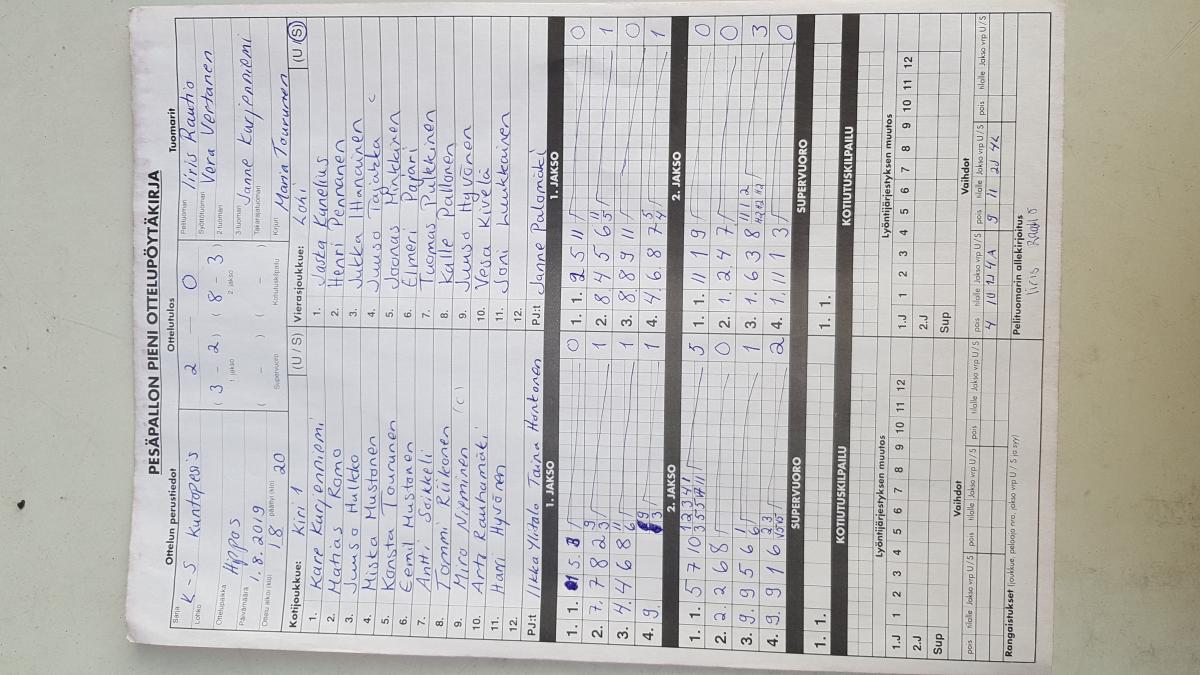 PESÄPALLON PIENI OTTELUPÖYTÄKIRJA
Ottelun perustiedot
Ottelutulos
Tuomarit
Sarja K-S Kuntopesis
Lohko
Ottelupaikka Hippos
Päivämäärä 1.8.2019
Ottelu alkoi (klo) 18 päättyi (klo) 20
2 0
( 3 - 2 ) ( 8 - 3 )
1 jakso 2 jakso
( - ) ( - )
Supervuoro Kotiutuskilpailu
Pelituomari Iiris Rautio
Syöttötuomari Vera Vertanen
2-tuomari
3-tuomari Janne Karjenniemi
Takarajatuomari
Kirjuri Maria Tourunen
Kotijoukkue: Kiri 1 (U / S)
1. Kare Karjenniemi
2. Matias Ramo
3. Juuso Hulkko
4. Miska Mustonen
5. Konsta Tourunen
6. Eemil Mustanen
7. Antti Soikkeli
8. Tommi Riikonen
9. Miro Nieminen (c)
10. Arto Rauhamäki
11. Harri Hyvönen
12.
PJ:t Ilkka Ylitalo Taina Hontonen
Vierasjoukkue: Lohi (U / S)
1. Jaska Kanelius
2. Henri Pennanen
3. Jukka Ihanainen
4. Juuso Taiakka c
5. Joonas Minkkinen
6. Elmeri Papari
7. Tuomas Pulkkinen
8. Kalle Pallonen
9. Juuso Hyvönen
10. Vesa Kivelä
11. Joni Luukkainen
12.
PJ:t Janne Palomäki
1. JAKSO
1. 1. 5. 8 0
2. 7. 7 8 2 9 3 1
3. 4. 4 6 8 11 6 1
4. 9. 1
2. JAKSO
1. 1. 5 7 10 1 2 3 4 1 5
2. 2. 2 6 8 0
3. 9. 9 5 6 1 6 1
4. 9. 9 1 6 2 3 2
SUPERVUORO
1. 1.
KOTIUTUSKILPAILU
1. JAKSO
1. 1. 2 5 11 0
2. 8 4 5 6 11 5 1
3. 8. 8 9 11 0
4. 4. 6. 8 7 5 4 1
2. JAKSO
1. 1. 11 1 9 0
2. 1. 2. 4 7 0
3. 1. 6 3 8 11 1 2 3
4. 1. 11 1 3 0
SUPERVUORO
1. 1.
KOTIUTUSKILPAILU
Lyöntijärjestyksen muutos
1.J 1 2 3 4 5 6 7 8 9 10 11 12
2.J
Sup
Lyöntijärjestyksen muutos
1.J 1 2 3 4 5 6 7 8 9 10 11 12
2.J
Sup
Vaihdot
pois tilalle Jakso vrp U / S pois tilalle Jakso vrp U / S pois tilalle Jakso vrp U / S
Vaihdot
pois tilalle Jakso vrp U / S pois tilalle Jakso vrp U / S pois tilalle Jakso vrp U / S
4 10 2J 4A 9 11 2J 4L
Rangaistukset (joukkue pelaaja nro, jakso vrp U / S ja syy)
Pelituomarin allekirjoitus
Iiris Rautio